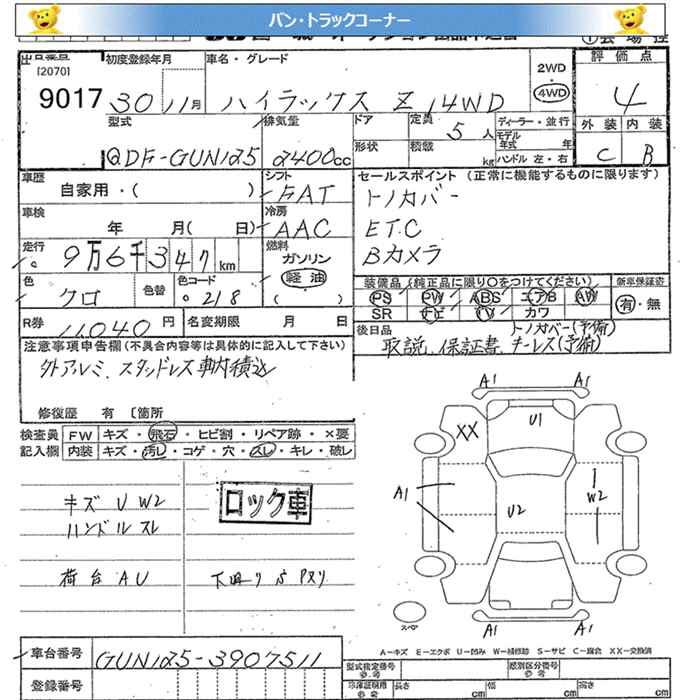 バン・トラックコーナー
[2070]
9017
初度登録年月
30 11月
車名・グレード
ハイラックス Z 4WD
2WD
4WD
評価点
4
外装 内装
C B
型式
QDF-GUN125
排気量
2400cc
ドア
定員 5人
形状
積載 kg
ディーラー・並行
モデル年式 年
ハンドル 左・右
車歴
自家用・( )
シフト
FAT
冷房
AAC
車検
年 月( 日)
走行
9万6千347km
燃料
ガソリン
軽油
( )
色
クロ
色替
色コード
218
R券 11040円
名変期限 月 日
セールスポイント (正常に機能するものに限ります)
トノカバー
ETC
Bカメラ
装備品(純正品に限り○をつけてください)
PS PW ABS エアB AW
SR ナビ TV カワ
新車保証書
有・無
後日品
トノカバー(予備)
取説、保証書、キーレス(予備)
注意事項申告欄(不具合内容等は具体的に記入して下さい)
外アルミ、スタッドレス車内積込
修復歴 有 〔箇所
検査員記入欄
FW キズ・飛石・ヒビ割・リペア跡・×要
内装 キズ・汚レ・コゲ・穴・スレ・キレ・破レ
キズ U W2
ハンドルスレ
荷台 AU
ロック車
下回りS Pヌリ
A1 A1
U1
XX
A1
U2
W2
A1 A1
スペア
A-キズ E-エクボ U-凹み W-補修跡 S-サビ C-腐食 XX-交換済
車台番号 GUN125-3907511
登録番号
型式指定番号
参考
類別区分番号
参考
長さ cm 幅 cm 高さ cm